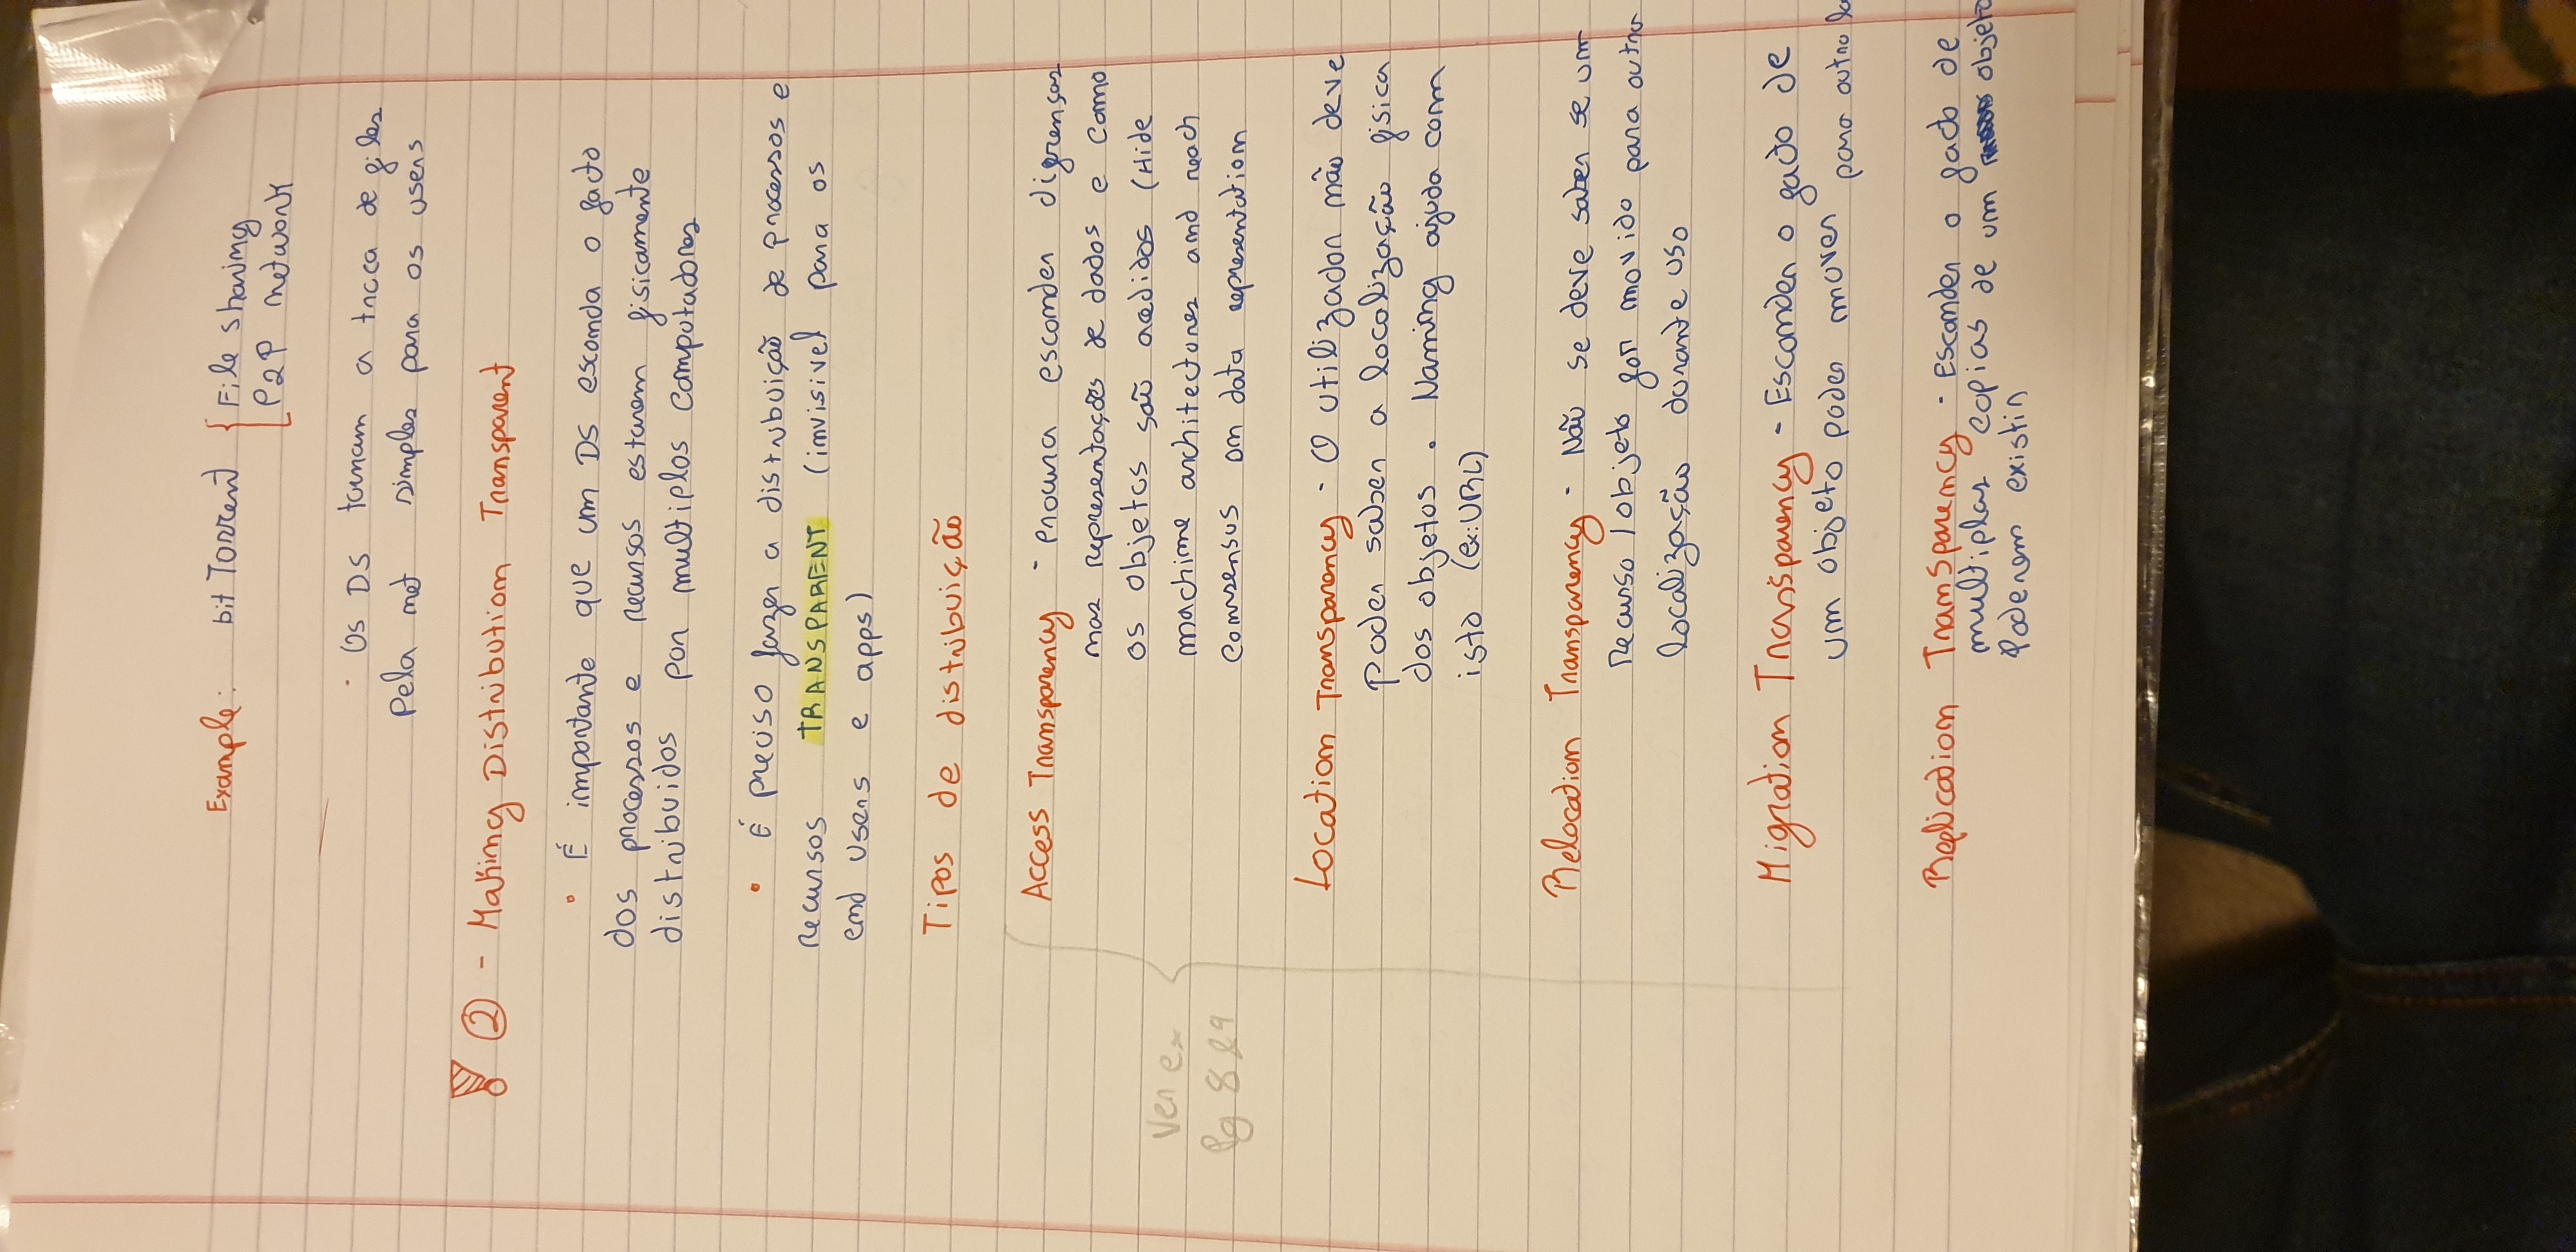 Example: bit Torrent { File sharing
P2P network
· Os DS tornam a troca de files
Pela net simples para os users
! ② - Making Distribution Transparent
• É importante que um DS esconda o facto
dos processos e recursos estarem fisicamente
distribuidos por multiplos computadores
• É preciso fazer a distribuição de processos e
recursos TRANSPARENT (invisivel para os
end users e apps)
Tipos de distribuição
Access Transparency - procura esconder difrenças
nas representações de dados e como
os objetos são acedidos (Hide
machine architectures and reach
consensus on data representation
Ver ex
Pg 8 e 9
Location Transparency - O utilizador não deve
poder saber a localização fisica
dos objetos . Naming ajuda com
isto (ex: URL)
Relocation Transparency - Não se deve saber se um
recurso / objeto for movido para outra
localização durante uso
Migration Transparency - Esconder o facto de
um objeto poder mover para outro lo
Replication Transparency - Esconder o facto de
multiplas copias de um objeto
Poderem existir